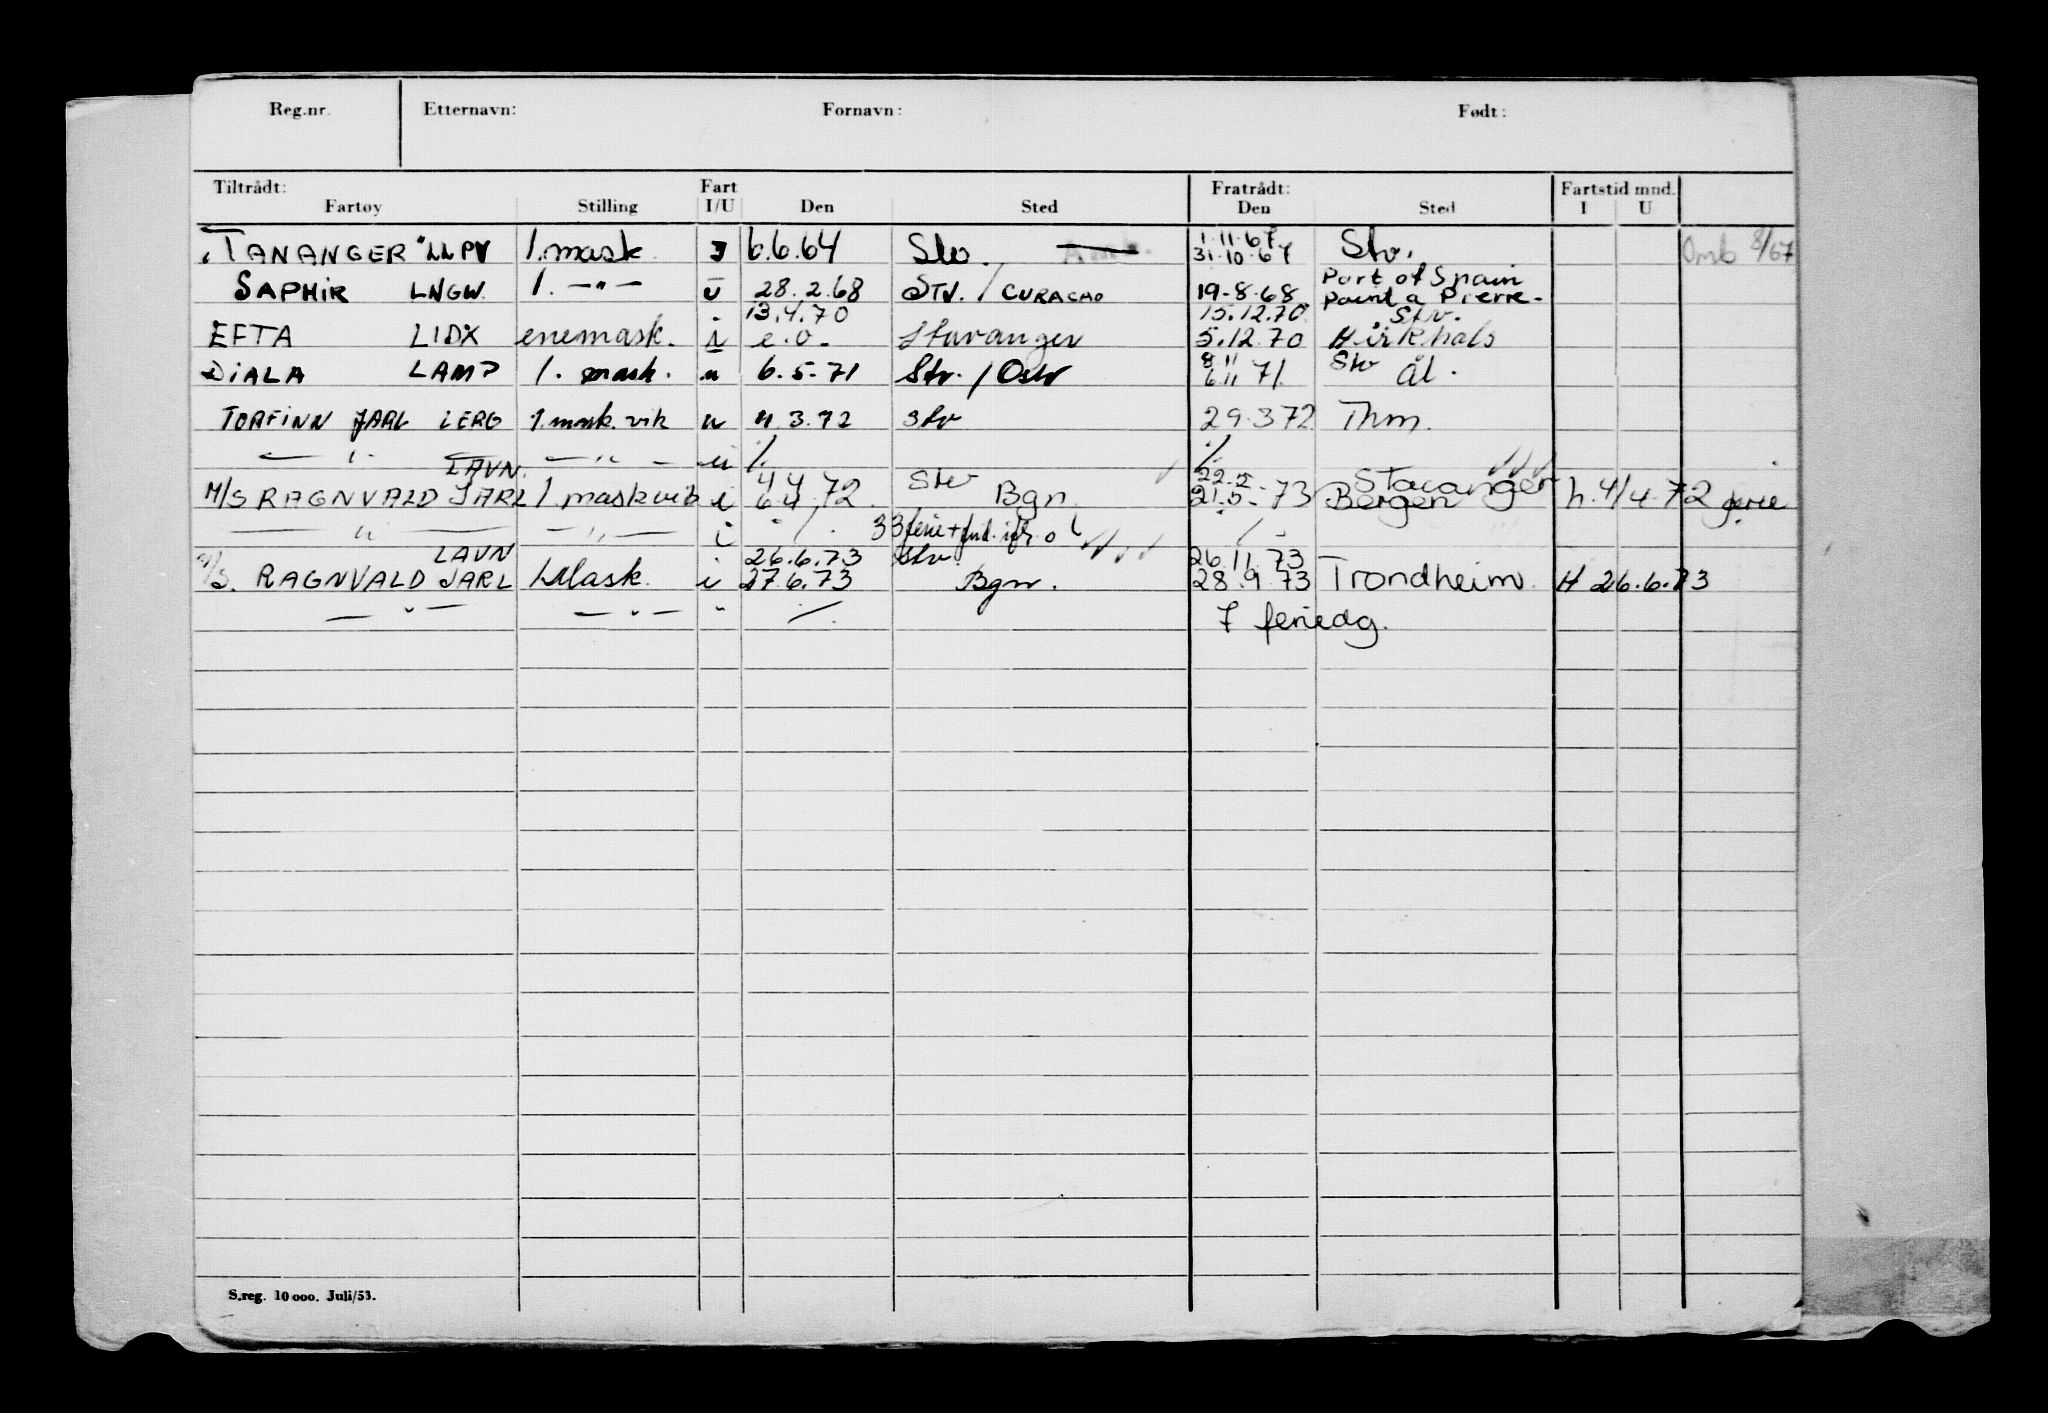 Reg.nr. Etternavn: Fornavn: Født:
Tiltrådt: Fart Fratrådt: Fartstid mnd.
Fartøy Stilling I/U Den Sted Den Sted I U
"TANANGER" LLPV 1. mask J 6.6.64 Stv. 1.11.67 Stv. Omb 8/67
31.10.67
SAPHIR LNGW 1. -"- U 28.2.68 STV. / CURACAO 19.8.68 Port of Spain
Point a Pierre.
13.4.70 15.12.70 Stv.
EFTA LIDX enemask. i e.o. Stavanger 5.12.70 Hirtshals
8/11 Stv
DIALA LAMP 1. mask. u 6.5.71 Stv. / Oslo 6.11 71. Ål.
TORFINN JARL LERG 1. mask. vik u 4 3.72 Stv 29.3 72 Thm.
— " — — " — u ./. ./.
LAVN. 4 4 Stv 22.5 Stavanger
M/S RAGNVALD JARL 1. maskvik i 6.4.72. Bgn. 21.5.73 Bergen h. 4/4-72 ferie
— " — — " — i ./. 33 ferie+ ./.
LAVN 26.6.73 Stv. 26.11.73
M/S. RAGNVALD JARL 1 Mask. i 27.6.73 Bgn. 28.9.73 Trondheim. H 26.6.73
— " — — " — " ./. 7 feriedg.
S.reg. 10 000. Juli/53.